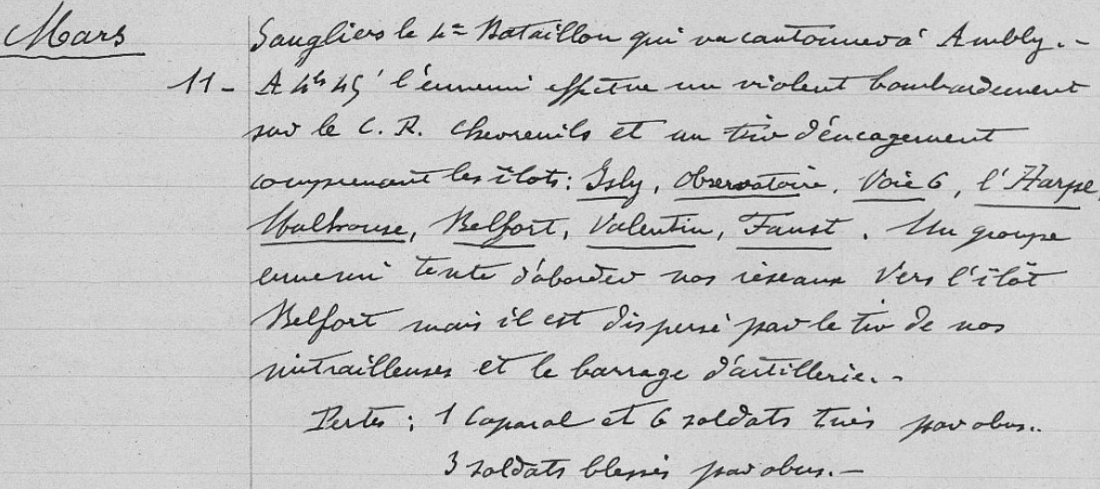 Mars
Sangliers le 4e Bataillon qui va cantonner à Ambly.-
11- A 4h45' l'ennemi effectue un violent bombardement
sur le C. R. Chevreuils et un tir d'encagement
comprenant les îlots: Isly, Observatoire, Voie 6, l'Harpe,
Mulhouse, Belfort, Valentin, Faust. Un groupe
ennemi tente d'aborder nos réseaux vers l'îlôt
Belfort mais il est dispersé par le tir de nos
mitrailleuses et le barrage d'artillerie.-
Pertes: 1 Caporal et 6 soldats tués par obus..
3 soldats blessés par obus.-